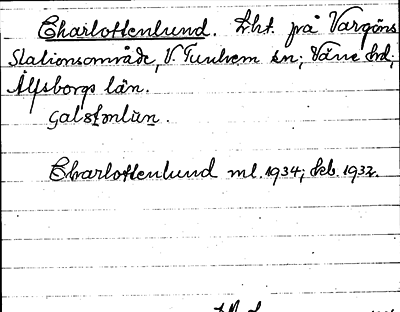 Charlottenlund. Lht. på Vargöns
Stationsområde, V. Tunhem sn; Väne hd;
Älfsborgs län.
Charlottenlund ml. 1934; kb. 1932.